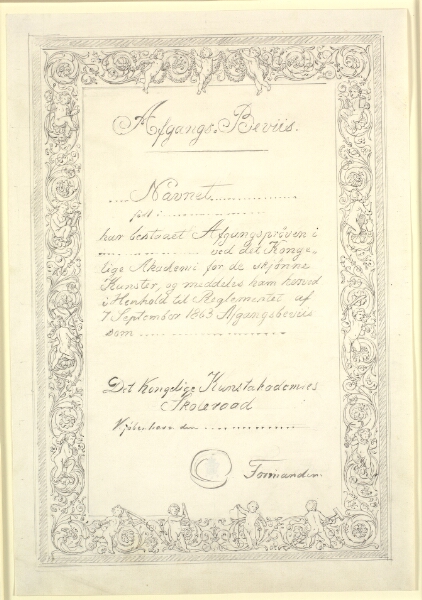 Afgangs-Beviis.
.... Navnet ................
født i ................
har bestaaet Afgangsprøven i
................ ved det Konge-
lige Akademi for de skjønne
Kunster, og meddeles ham herved
i Henhold til Reglementet af
7 September 1863 Afgangsbeviis
som ................
Det Kongelige Kunstakademies
Skoleraad
Kjøbenhavn den ................
Formanden.